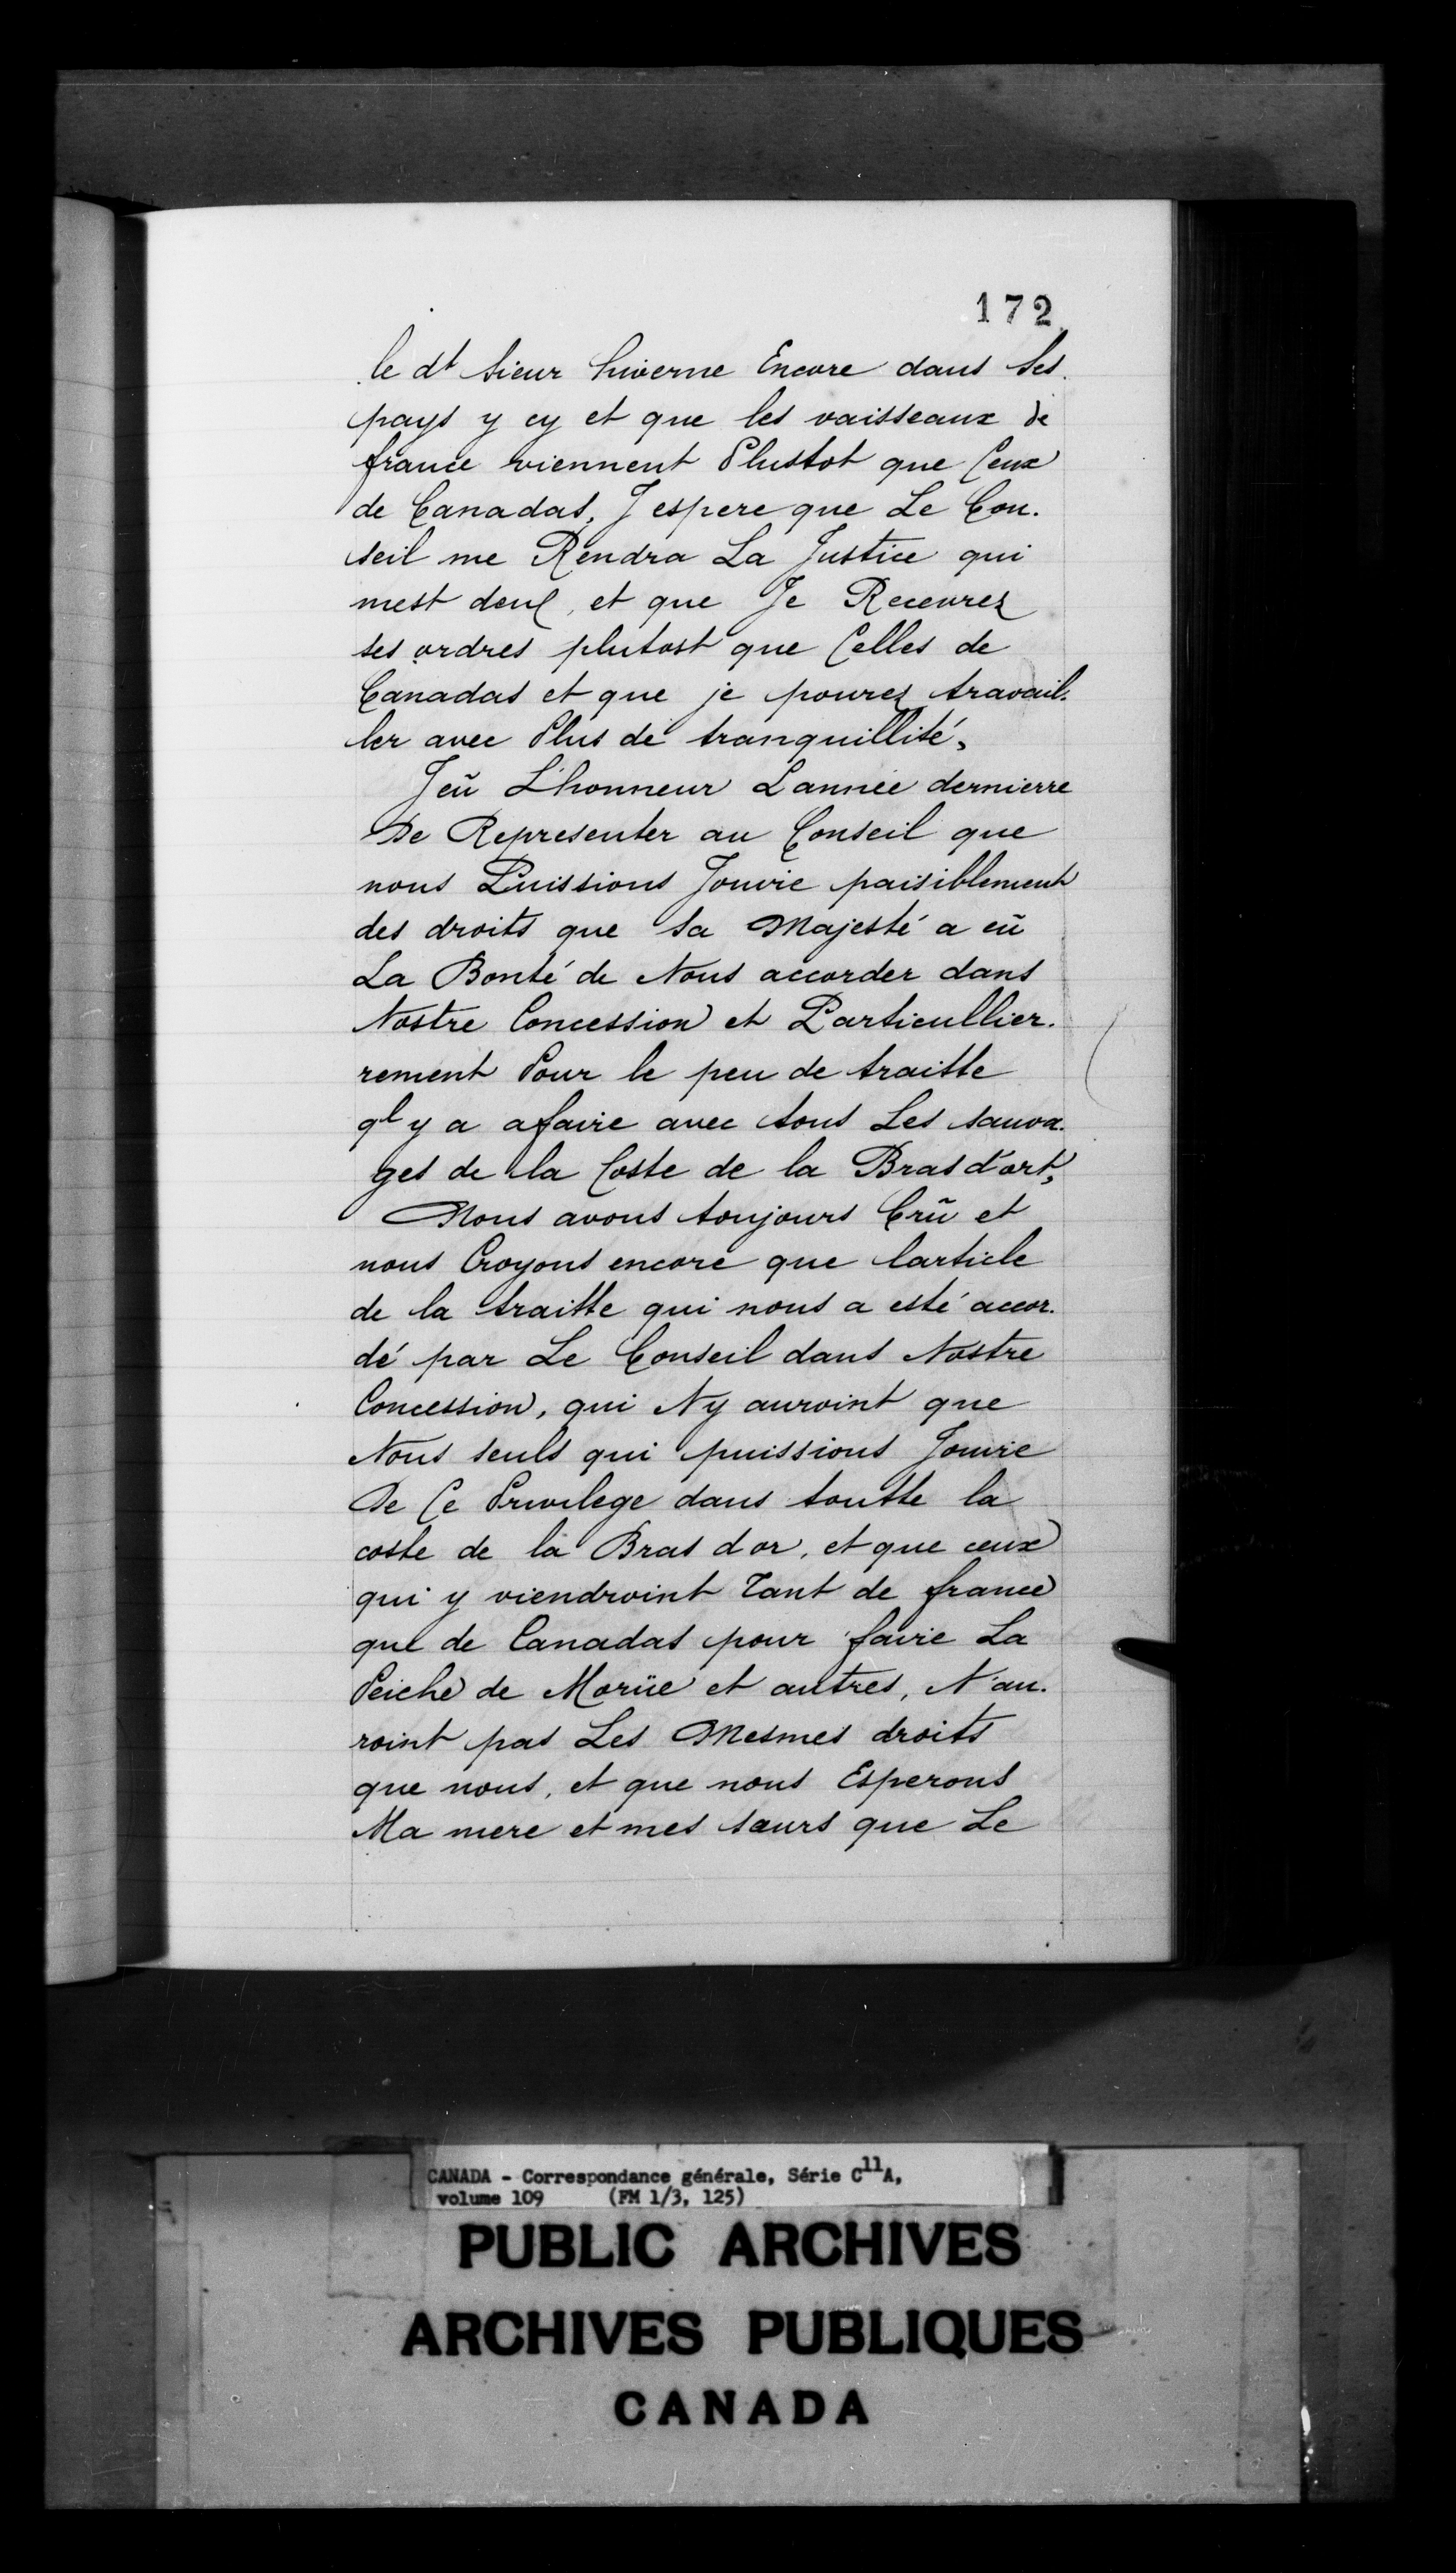 172
le dt sieur hiverne Encore dans Ses
pays y cy et que les vaisseaux de
france viennent Plustot que Ceux
de Canadas, J espere que Le Con.
seil me Rendra La Justice qui
mest deue, et que Je Recevrez
ses ordres plutost que Celles de
Canadas et que je pourez travail.
ler avec Plus de tranquillité,
Jeũ L'honneur Lannée dernierre
De Representer au Conseil que
nous Puissions Jouvie paisiblement
des droits que Sa Majesté a eũ
La Bonté de Nous accorder dans
Nostre Concession et Particullier.
rement Pour le peu de traitte
ql y a afaire avec tous Les sauva.
ges de la Coste de la Bras d'ort,
Nous avons toujours Crũ et
nous Croyons encore que larticle
de la traitte qui nous a esté accor.
dé par Le Conseil dans Nostre
Concession, qui Ny auroint que
Nous seuls qui puissions Jouvie
De Ce Privilege dans toutte la
coste de la Bras dor, et que ceux
qui y viendroint Tant de france
que de Canadas pour faire La
Peiche de Morüe et autres, N'au.
roint pas Les Mesmes droits
que nous, et que nous Esperons
Ma mere et mes sœurs que Le
CANADA - Correspondance générale, Série C11A,
volume 109 (FM 1/3, 125)
PUBLIC ARCHIVES
ARCHIVES PUBLIQUES
CANADA